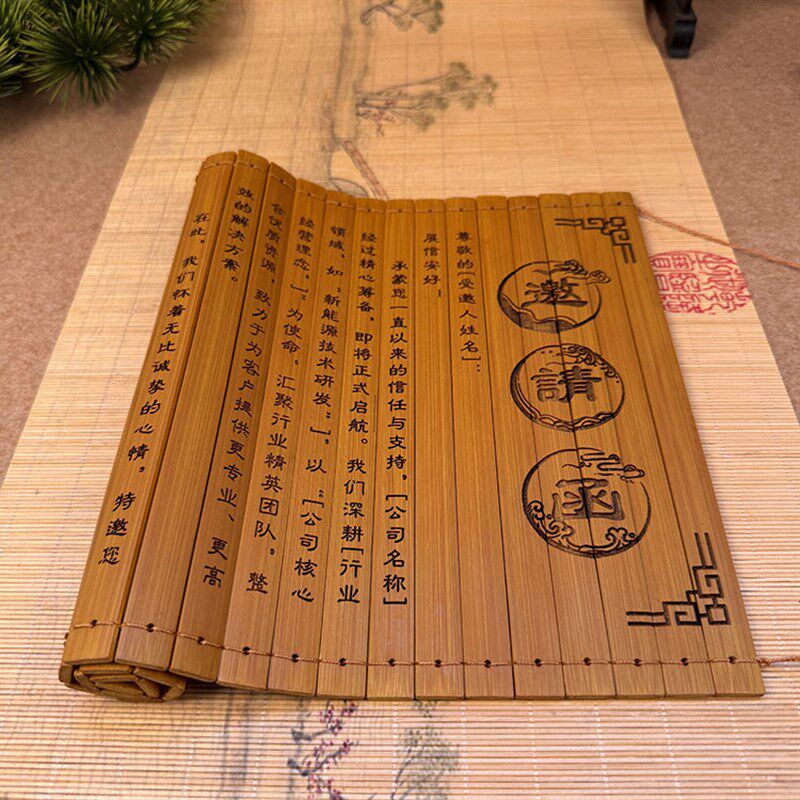 邀請函
尊敬的[受邀人姓名]：
展信安好！
承蒙您一直以来的信任与支持，[公司名称]
经过精心筹备，即将正式启航。我们深耕[行业
领域，如："新能源技术研发"]，以"[公司核心
经营理念，]"为使命，汇聚行业精英团队，整
合优质资源，致力于为客户提供更专业、更高
效的解决方案。
在此，我们怀着无比诚挚的心情，特邀您